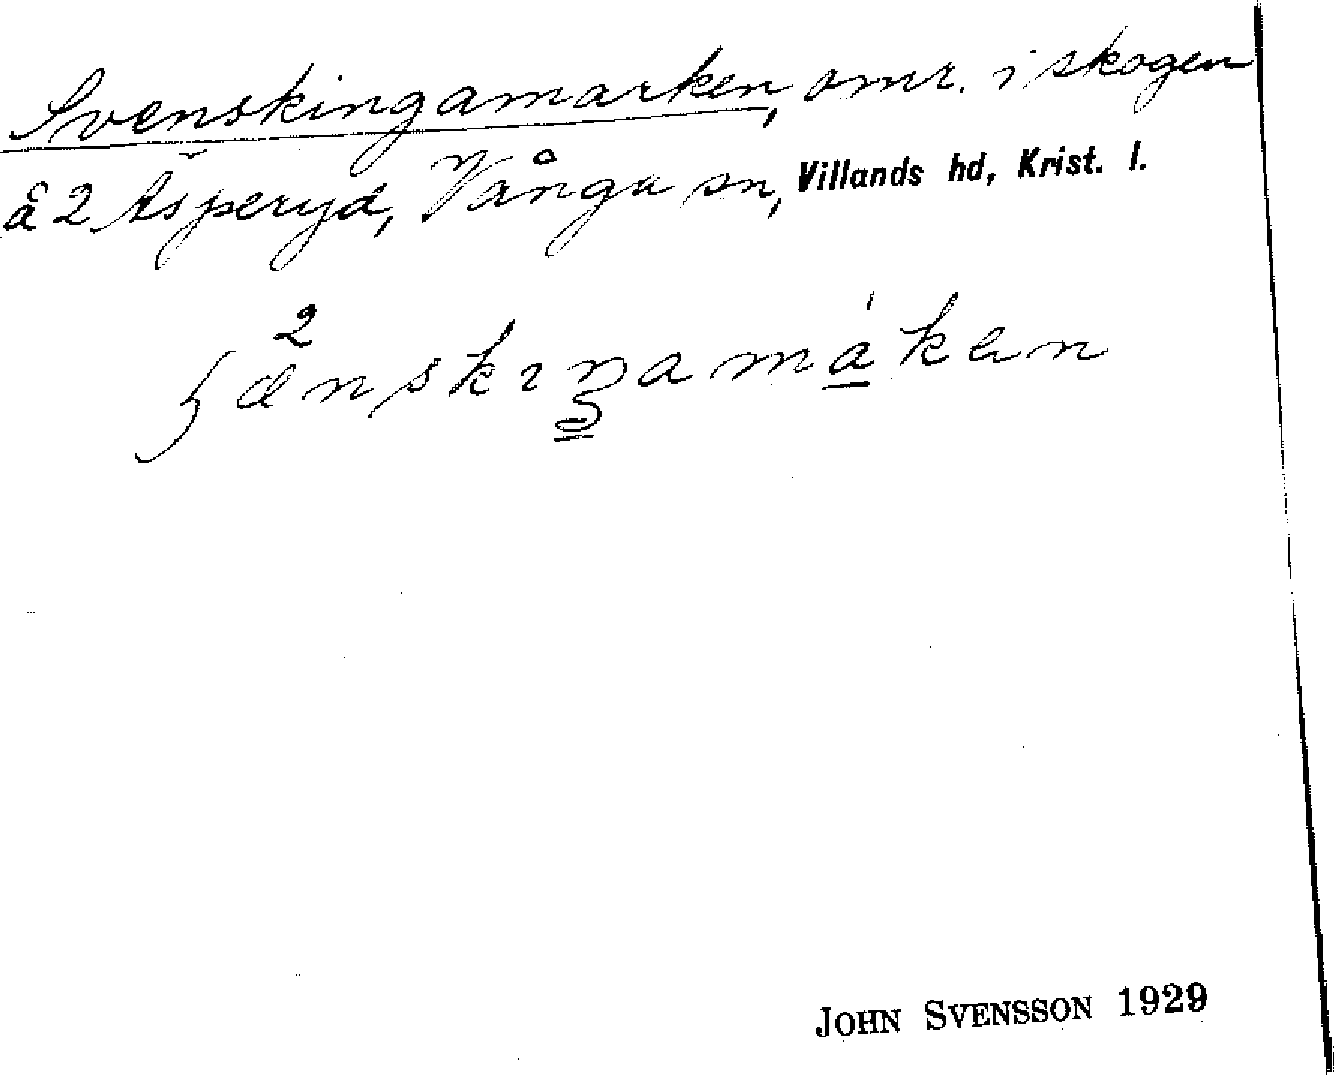 Svenskingamarken, omr. i skogen
å 2 Asperyd, Vånga sn, Villands hd, Krist. l.
JOHN SVENSSON 1929